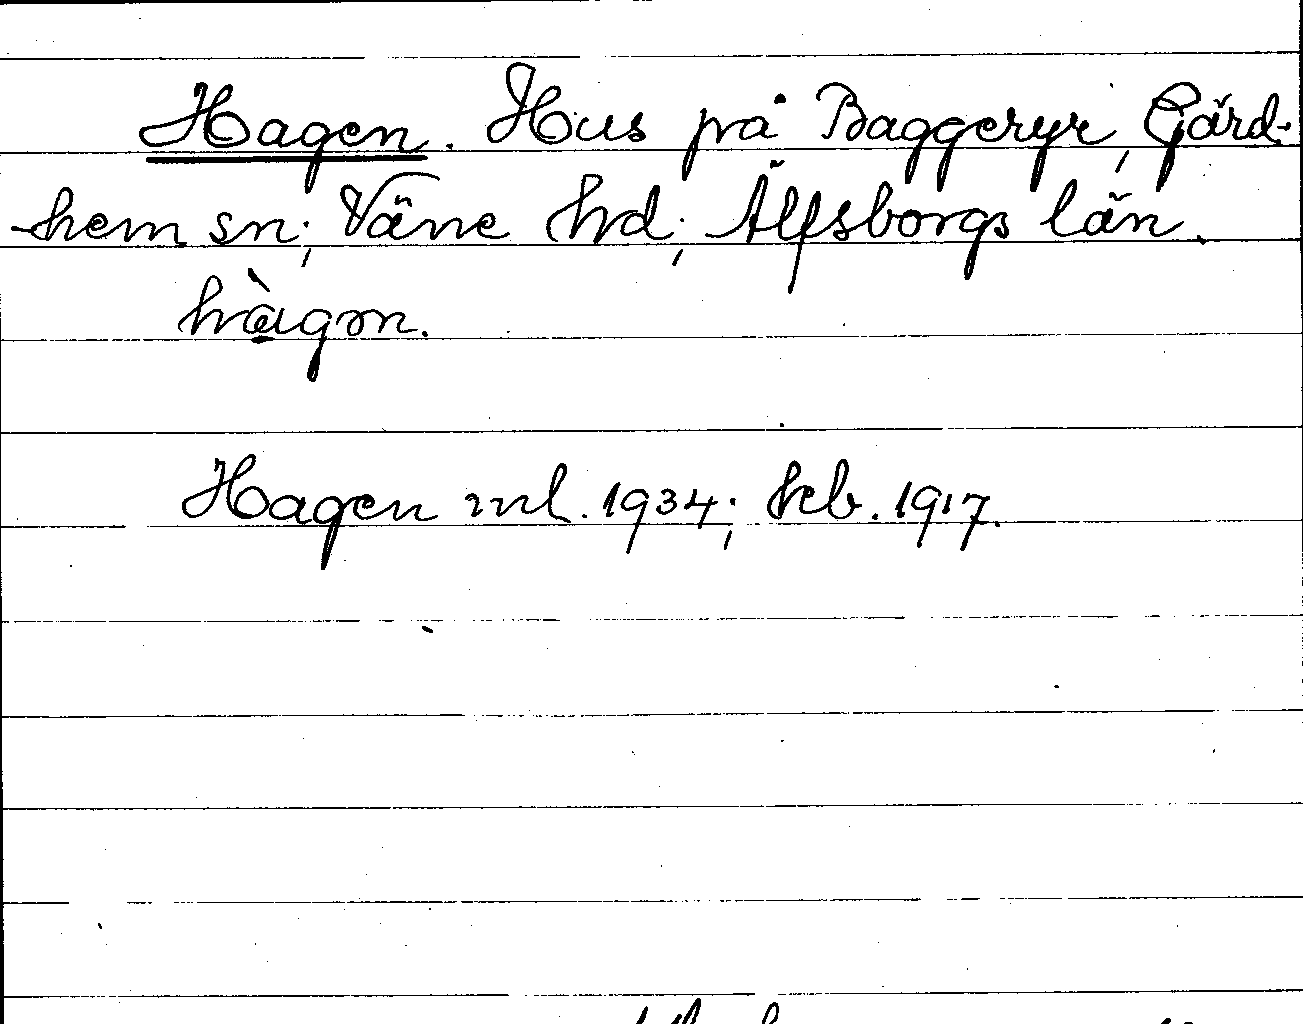 Hagen. Hus på Baggeryr, Gärd-
hem sn; Väne hd; Älfsborgs län.
hàgm.
Hagen ml. 1934; kcb. 1917.